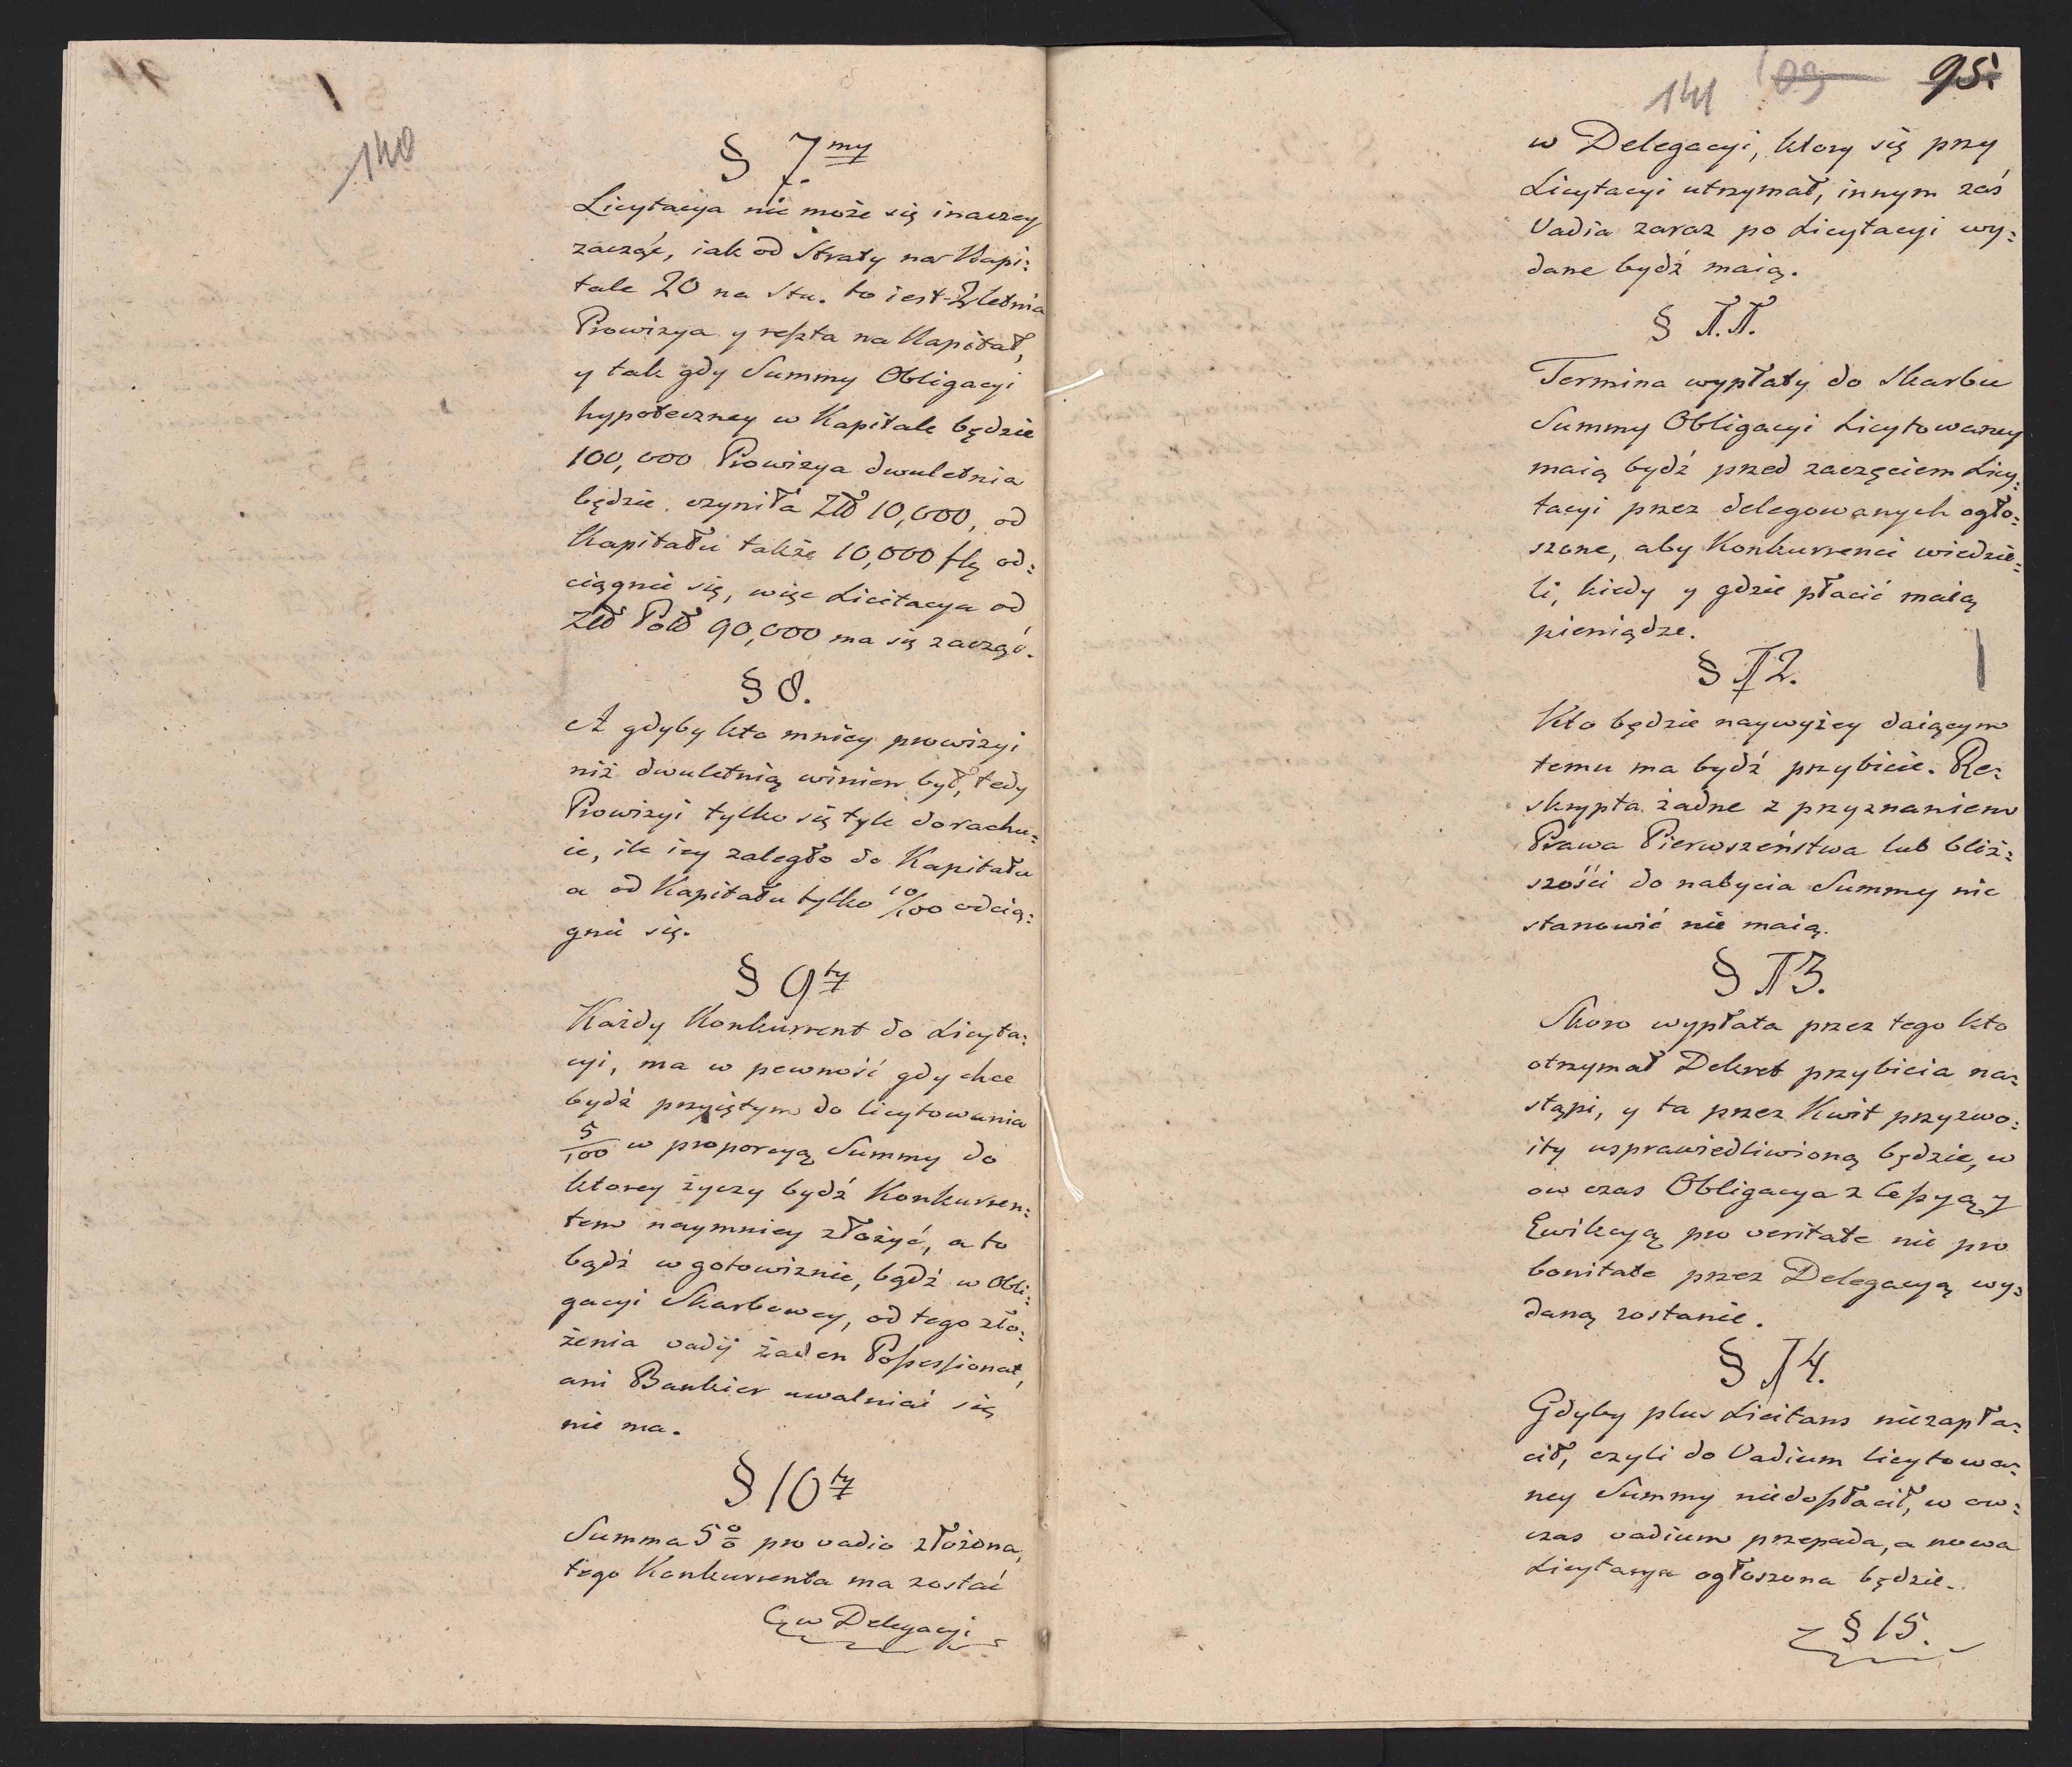 140
§ 7my
Licytacya nie może się inaczey
zacząć, iak od Straty na Kapi:
tale 20 na Stu. to iest 2letnia
Prowizya y reszta na Kapitał,
y tak gdy Summy Obligacyi
hypoteczney w Kapitale będzie
100,000 Prowizya dwuletnia
będzie czyniła Złł 10,000, od
Kapitału także 10,000 od:
ciągnie się, więc Licitacya od
Złł Poll 90,000 ma się zacząć.
§ 8.
A gdyby kto mniey prowizyi
niż dwuletnią winien był, tedy
Prowizyi tylko się tyle dorachu:
ie, ile iey zaległo do Kapitału
a od Kapitału tylko 10/100 odcią:
gnie się.
§ 9ty
Każdy Konkurrent do Licyta:
cyi, ma w pewność gdy chce
bydź przyiętym do licytowania
5/100 w proporcyą Summy do
ktorey życzy bydź Konkurren:
tem naymniey złożyć, a to
bądź w gotowiznie, bądź w Obli:
gacyi Skarbowey, od tego zło:
żenia vadij żaden Possessionat,
ani Bankier uwalniać się
nie ma.
§ 10ty
Summa 5 % pro vadio złożona,
tego Konkurrenta ma zostać
w Delegacyi
141 103 95.
w Delegacyi, ktory się przy
Licytacyi utrzymał, innym zaś
Vadia zaraz po Licytacyi wy:
dane bydź maią.
§ 11.
Termina wypłaty do Skarbu
Summy Obligacyi Licytowaney
maią bydź przed zaczęciem Licy:
tacyi przez delegowanych ogło:
szone, aby Konkurrenci wiedzie:
li, kiedy y gdzie płacić maią
pieniądze.
§ 12.
Kto będzie naywyżey daiącym
temu ma bydź przybicie. Re:
skrypta żadne z przyznaniem
Prawa Pierwszeństwa lub bliż:
szości do nabycia Summy nic
stanowić nie maią.
§ 13.
Skoro wypłata przez tego kto
otrzymał Dekret przybicia na:
stąpi, y ta przez Kwit przyzwo:
ity usprawiedliwioną będzie, w
ow czas Obligacya z Cessyą y
Ewikcyą pro veritate nie pro
bonitate przez Delegacyą wy:
daną zostanie.
§ 14.
Gdyby plus Licitans niezapła:
cił, czyli do Vadium licytowa:
ney Summy niedopłacił, w ow:
czas vadium przepada, a nowa
Licytacya ogłoszona będzie.
§ 15.